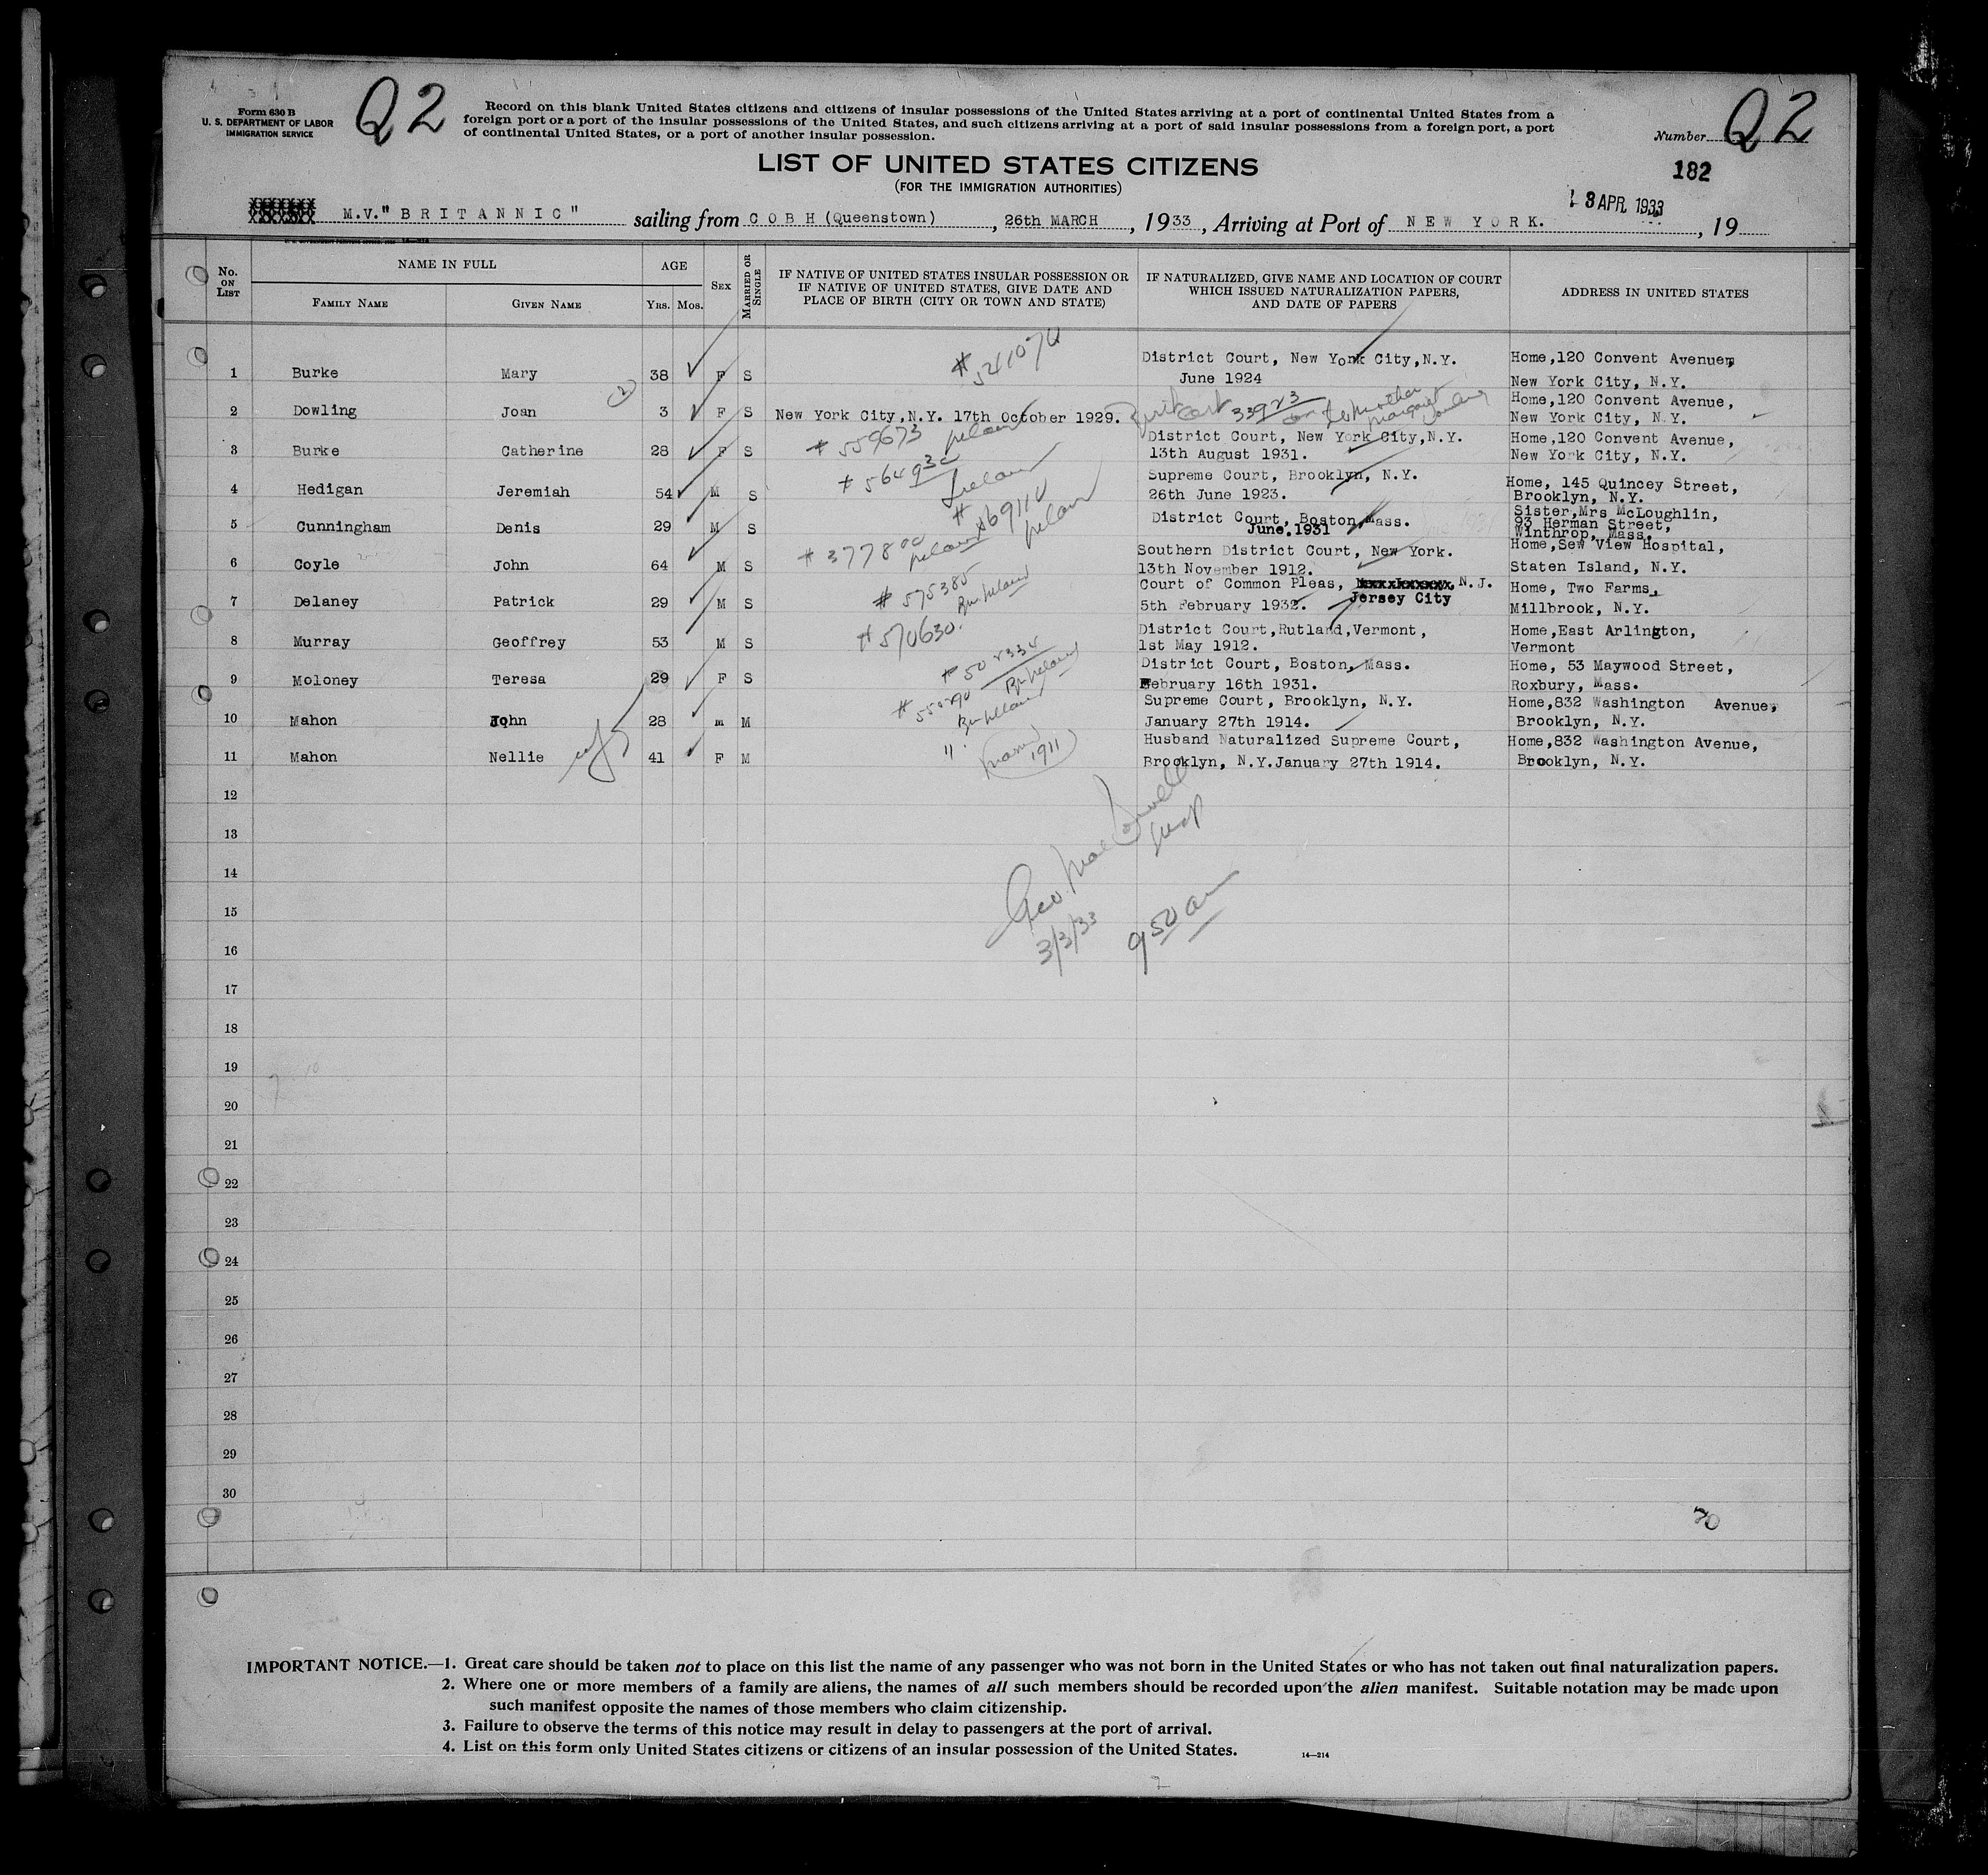 Form 630 B
U. S. DEPARTMENT OF LABOR
IMMIGRATION SERVICE
Q2
Record on this blank United States citizens and citizens of insular possessions of the United States arriving at a port of continental United States from a
foreign port or a port of the insular possessions of the United States, and such citizens arriving at a port of said insular possessions from a foreign port, a port
of continental United States, or a port of another insular possession.
Number Q2
LIST OF UNITED STATES CITIZENS
(FOR THE IMMIGRATION AUTHORITIES)
182
3 APR 1933
M.V." BRITANNIC " sailing from COBH (Queenstown), 26th MARCH, 1933, Arriving at Port of NEW YORK., 19
No. ON LIST
NAME IN FULL
FAMILY NAME
GIVEN NAME
AGE
YRS. MOS.
SEX
MARRIED OR SINGLE
IF NATIVE OF UNITED STATES INSULAR POSSESSION OR
IF NATIVE OF UNITED STATES, GIVE DATE AND
PLACE OF BIRTH (CITY OR TOWN AND STATE)
IF NATURALIZED, GIVE NAME AND LOCATION OF COURT
WHICH ISSUED NATURALIZATION PAPERS,
AND DATE OF PAPERS
ADDRESS IN UNITED STATES
1 Burke Mary 38 F S District Court, New York City,N.Y. Home,120 Convent Avenue,
June 1924 New York City, N.Y.
2 Dowling Joan 3 F S New York City,N.Y. 17th October 1929. 33923 Home,120 Convent Avenue,
New York City, N.Y.
3 Burke Catherine 28 F S # 559673 District Court, New York City,N.Y. Home,120 Convent Avenue,
13th August 1931. New York City, N.Y.
4 Hedigan Jeremiah 54 M S Ireland Supreme Court, Brooklyn, N.Y. Home, 145 Quincey Street,
26th June 1923. Brooklyn, N.Y.
5 Cunningham Denis 29 M S District Court, Boston,Mass. Sister,Mrs McLoughlin,
June.1931 93 Herman Street,
Winthrop, Mass.
6 Coyle John 64 M S Southern District Court, New York. Home,Sew View Hospital,
13th November 1912. Staten Island, N.Y.
7 Delaney Patrick 29 M S # 575385 Court of Common Pleas, N.J. Home, Two Farms,
Jersey City
5th February 1932. Millbrook, N.Y.
8 Murray Geoffrey 53 M S # 570630. District Court,Rutland,Vermont, Home,East Arlington,
1st May 1912. Vermont
9 Moloney Teresa 29 F S District Court, Boston, Mass. Home, 53 Maywood Street,
February 16th 1931. Roxbury, Mass.
10 Mahon John 28 m M Supreme Court, Brooklyn, N.Y. Home,832 Washington Avenue,
January 27th 1914. Brooklyn, N.Y.
11 Mahon Nellie wf 41 F M " 1911 Husband Naturalized Supreme Court, Home,832 Washington Avenue,
Brooklyn, N.Y.January 27th 1914. Brooklyn, N.Y.
12
Geo. MacDowell
13
14
15
3/3/33 9 50 am
16
17
18
19
20
21
22
23
24
25
26
27
28
29
30
20
IMPORTANT NOTICE.—1. Great care should be taken not to place on this list the name of any passenger who was not born in the United States or who has not taken out final naturalization papers.
2. Where one or more members of a family are aliens, the names of all such members should be recorded upon the alien manifest. Suitable notation may be made upon
such manifest opposite the names of those members who claim citizenship.
3. Failure to observe the terms of this notice may result in delay to passengers at the port of arrival.
4. List on this form only United States citizens or citizens of an insular possession of the United States.
14—214